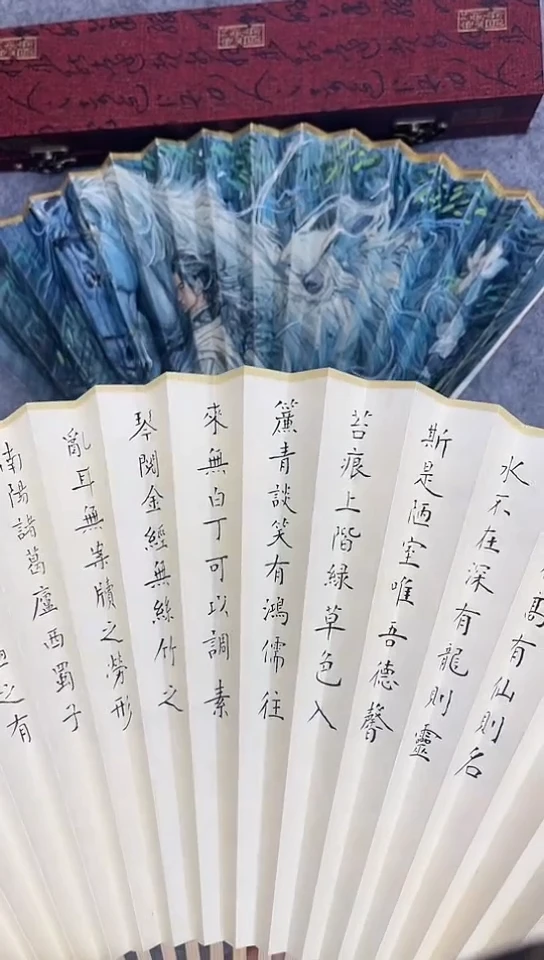 高有仙則名
水不在深有龍則靈
斯是陋室唯吾德馨
苔痕上階緑草色入
簾青談笑有鴻儒往
來無白丁可以調素
琴閱金經無絲竹之
亂耳無案牘之勞形
南陽諸葛廬西蜀子
之有